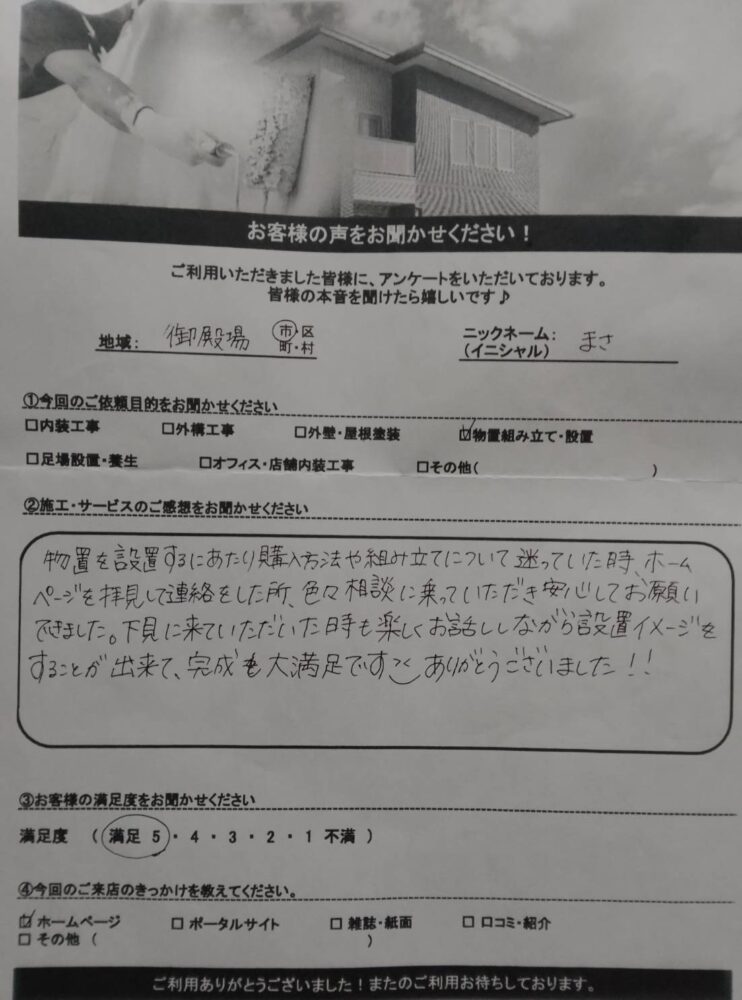 お客様の声をお聞かせください！
ご利用いただきました皆様に、アンケートをいただいております。
皆様の本音を聞けたら嬉しいです♪
地域： 御殿場 市・区 町・村 ニックネーム： (イニシャル) まさ
①今回のご依頼目的をお聞かせください
□内装工事 □外構工事 □外壁・屋根塗装 ☑物置組み立て・設置
□足場設置・養生 □オフィス・店舗内装工事 □その他( )
②施工・サービスのご感想をお聞かせください
物置を設置するにあたり購入方法や組み立てについて迷っていた時、ホーム
ページを拝見して連絡をした所、色々相談に乗っていただき安心してお願い
できました。下見に来ていただいた時も楽しくお話ししながら設置イメージを
することが出来て、完成も大満足です ありがとうございました！！
③お客様の満足度をお聞かせください
満足度 ( 満足 5 ・ 4 ・ 3 ・ 2 ・ 1 不満 )
④今回のご来店のきっかけを教えてください。
☑ホームページ □ ポータルサイト □ 雑誌・紙面 □ 口コミ・紹介
□ その他 ( )
ご利用ありがとうございました！またのご利用お待ちしております。